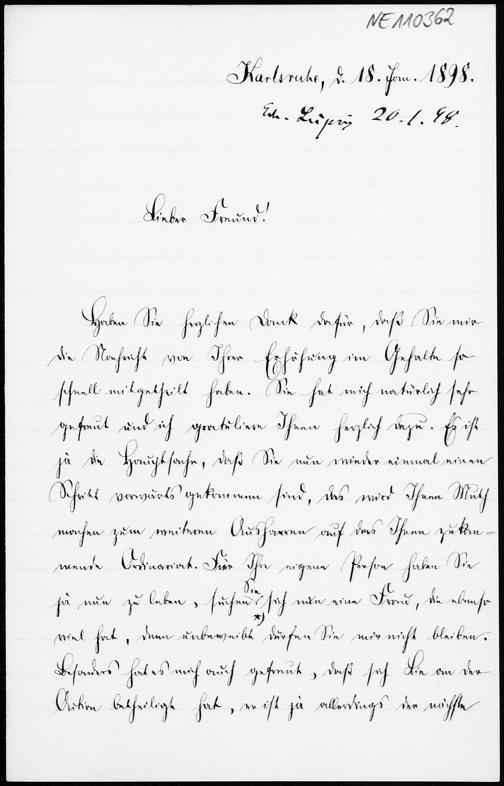 NE110362
Karlsruhe, d. 18. Jan. 1898.
Erh. Leipzig 20. 1. 98.
Lieber Freund!
Haben Sie herzlichen Dank dafür, daß Sie mir
die Nachricht von Ihrer Erhöhung im Gehalte so
schnell mitgetheilt haben. Sie hat mich natürlich sehr
gefreut und ich gratuliere Ihnen herzlich dazu. Es ist
ja die Hauptsache, daß Sie nun wieder einmal einen
Schritt vorwärts gekommen sind, das wird Ihnen Muth
machen zum weiteren Ausharren auf das Ihnen zukom-
mende Ordinariat. Für Ihre eigene Person haben Sie
ja nun zu leben, suchen Sie *) sich nun eine Frau, die ebenso
viel hat, denn unbeweibt dürfen Sie mir nicht bleiben.
Besonders hat es mich auch gefreut, daß sich Lie an der
Aktion betheiligt hat, er ist ja allerdings der nächste